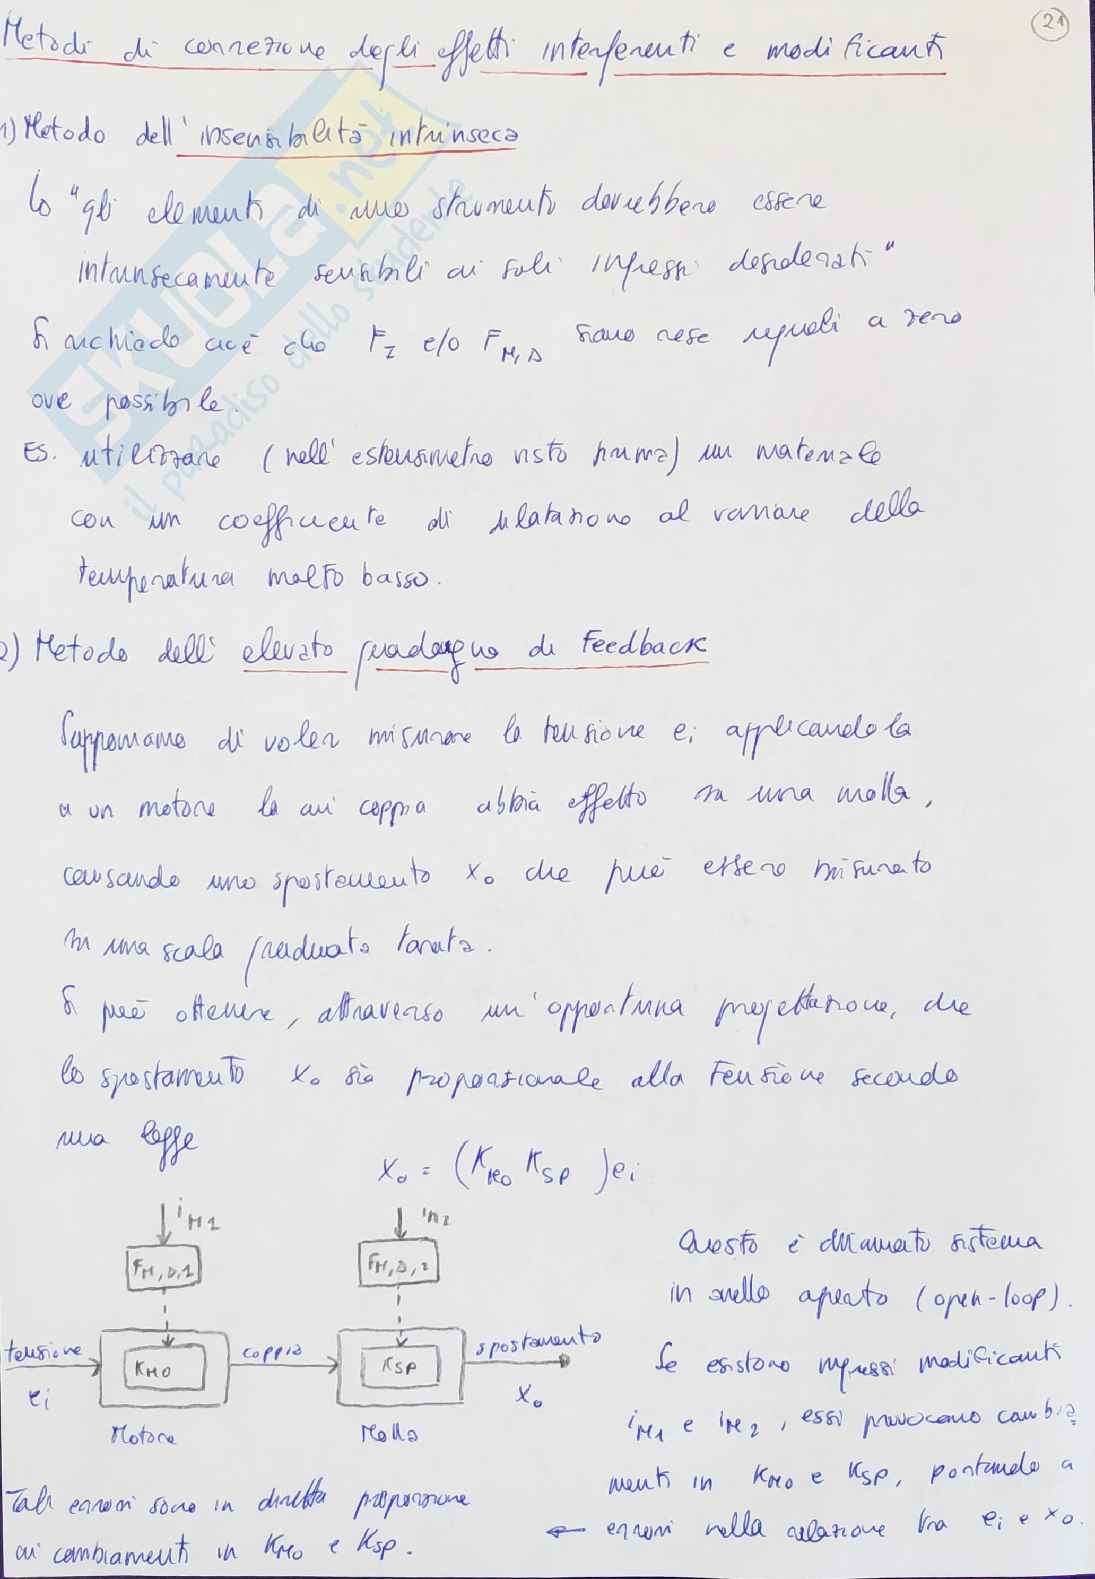 21
Metodi di correzione degli effetti interferenti e modificanti
1) Metodo dell'insensibilità intrinseca
Lo "gli elementi di uno strumento dovrebbero essere
intrinsecamente sensibili ai soli ingressi desiderati"
Si richiede cioè che F_I e/o F_M,D siano rese uguali a zero
ove possibile.
ES. utilizzare (nell'estensimetro visto prima) un materiale
con un coefficiente di dilatazione al variare della
temperatura molto basso.
2) Metodo dell'elevato guadagno di Feedback
Supponiamo di voler misurare la tensione e_i applicandola
a un motore la cui coppia abbia effetto su una molla,
causando uno spostamento x_o che può essere misurato
su una scala graduata tarata.
Si può ottenere, attraverso un'opportuna progettazione, che
lo spostamento x_o sia proporzionale alla tensione secondo
una legge
x_o = (K_MO K_SP) e_i
i_M1
i_M2
F_M,D,1
F_M,D,2
tensione
e_i
K_MO
Motore
coppia
K_SP
Molla
spostamento
x_o
Questo è chiamato sistema
in anello aperto (open-loop).
Se esistono ingressi modificanti
i_M1 e i_M2, essi provocano cambia
menti in K_MO e K_SP, portando a
← errori nella relazione tra e_i e x_o.
Tali errori sono in diretta proporzione
ai cambiamenti in K_MO e K_SP.
SKUOLA.net
il paradiso dello studente